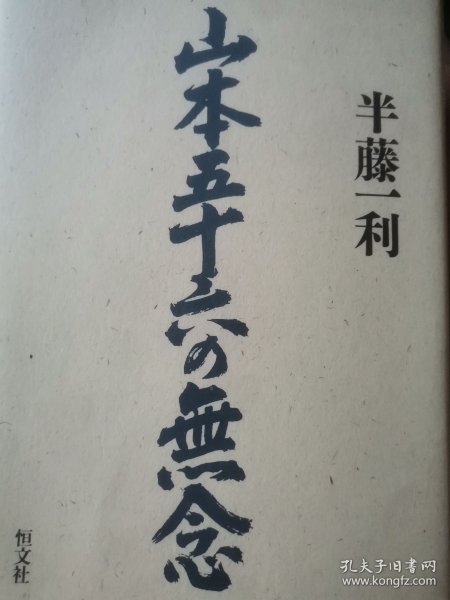 半藤一利
山本五十六の無念
恒文社
孔夫子旧书网
www.kongfz.com